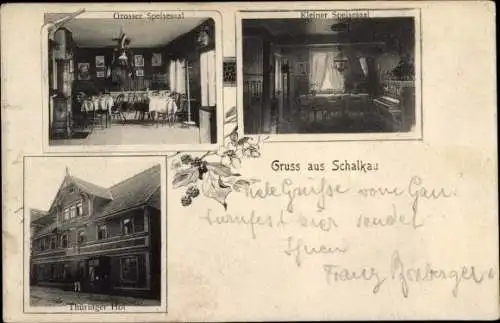 Grosser Speisesaal
Kleiner Speisesaal
Gruss aus Schalkau
Viele Grüße vom Gau-
turnfest hier sendet
Ihnen
Franz
Thüringer Hof